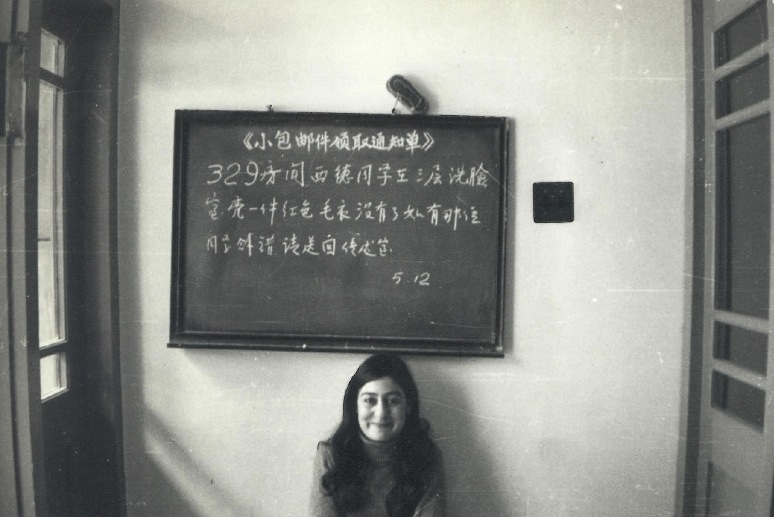 《小包邮件领取通知单》
329房间西德同学在三层洗脸
室壳一件红色毛衣没有了如有那位
同学错请送回传达室.
5.12